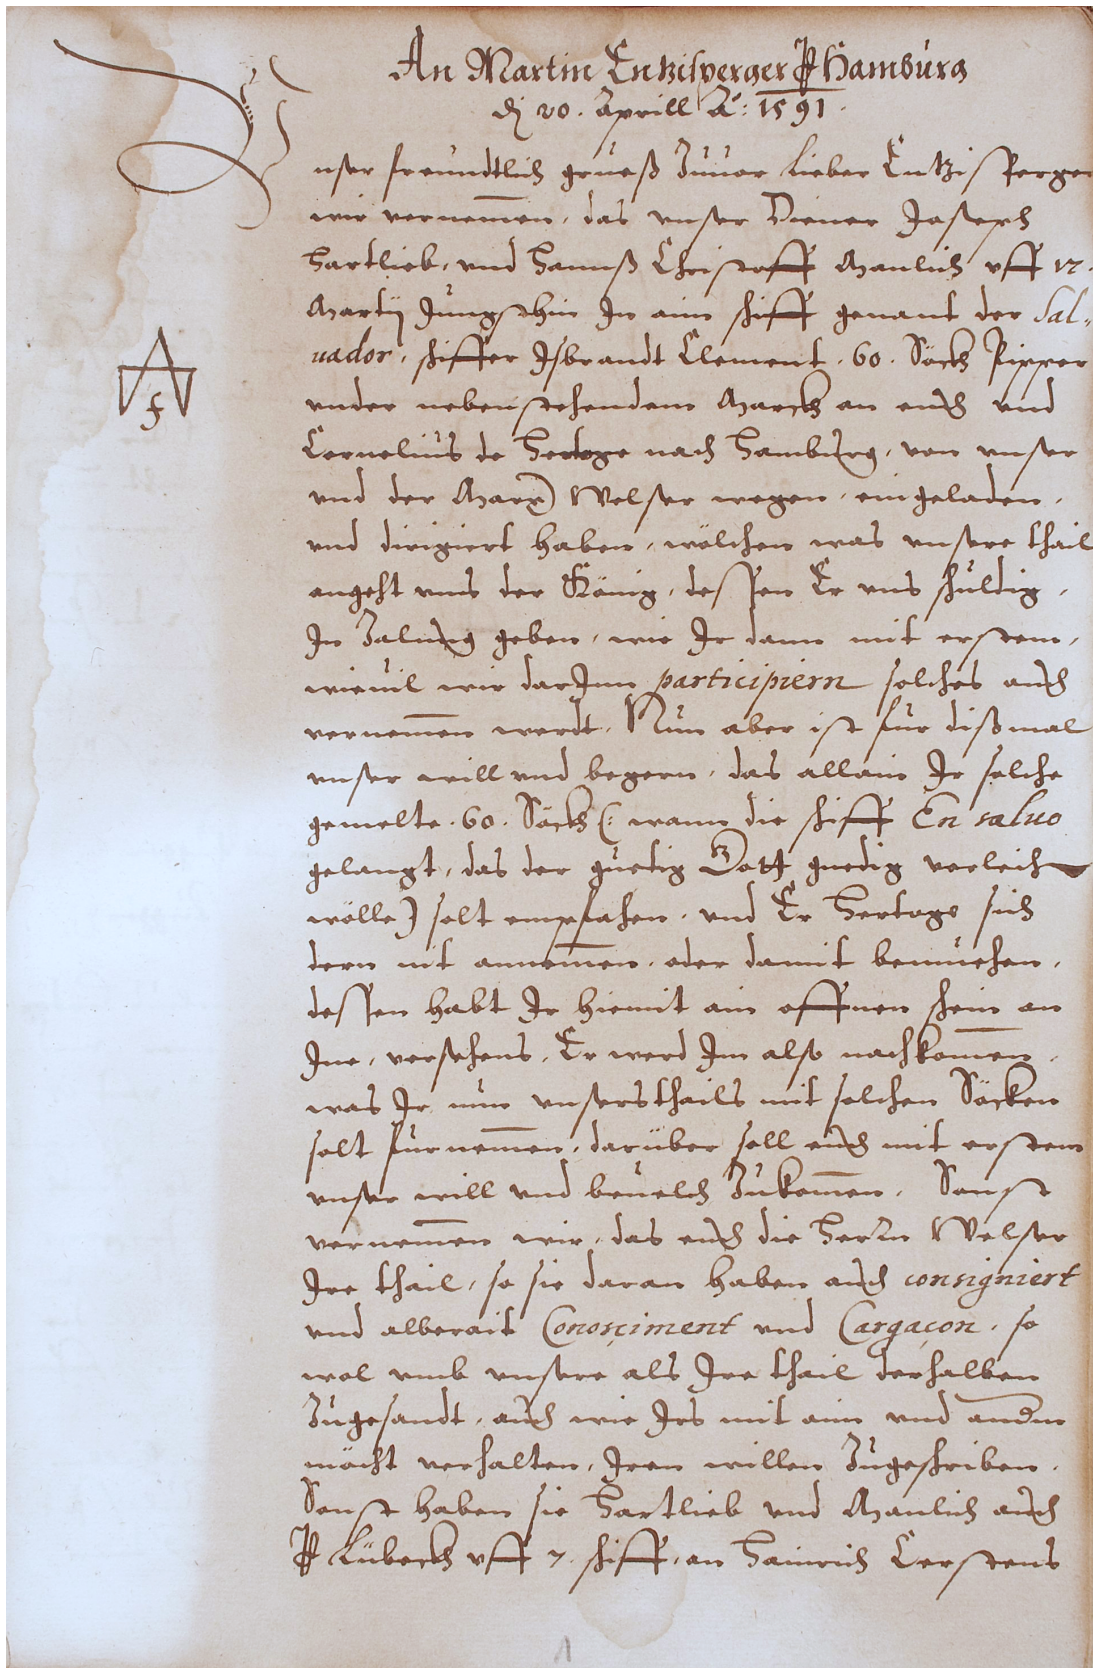 An Martin Entzisperger p Hamburg
dj 20. Aprill Aº: 1591.
Unser freundtlich grueß Zuuor lieber Entzisperger
wir vernemen, das vnser Diener Joseph
Hartlieb, vnd Hannß Christoff Manlich vff 17.
Martij Jungsthin In ain schiff genant der Sal-
uador, schiffer Isbrandt Clement. 60. Säckh Pipper
vnder nebenstehendem Marckh an euch vnd
Cornelius de Hertoge nach Hamburg, von vnser
vnd der Marx Welser wegen, eingeladen,
vnd dirigiert haben, wölchen was vnsere thail
angeht vns der König, dessen Er vns schuldig,
In Zalung geben, wie Ir dann mit erstem,
wieuil wir darJnn participiern solches auch
vernemen werdt. Nun aber ist fur dißmal
vnser will vnd begern, das allain Ir solche
gemelte. 60. Säckh (: wann die schiff En saluo
gelangt, das der guetig Gott gnedig verleich
wölle) solt empfahen, vnd Er Hertoge sich
dern nit annemen, oder damit bemuehen,
dessen habt Ir hiemit ain offnen schein an
Ine, versehens, Er werd Im also nachkomen,
was Ir nun vnsersthails mit solchen Säcken
solt furnemen, darüber soll euch mit erstem
vnser will vnd beuelch Zukomen. Sonst
vernemen wir, das euch die Herrn Welser
Ire thail, so sie daran haben auch consigniert
vnd alberait Conosçiment vnd Cargaçon, so
wol vmb vnsere als Ire thail derhalben
Zugesandt, auch wie Irs mit aim vnd andern
möcht verhalten, Iren willen Zugeschriben.
Sonst haben sie Hartlieb vnd Manlich auch
p Lübeckh vff 7. schiff, an Hainrich Kerstens
1